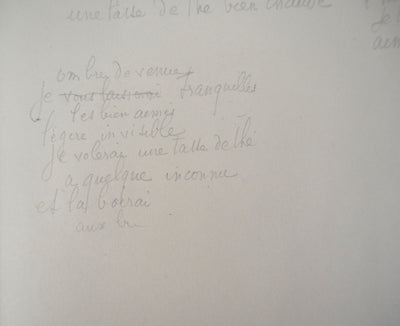 une tasse de thé bien chaude
Je
aim
ombre devenue
Je vous laisserai tranquilles
les bien aimés
légère invisible
Je volerai une tasse de thé
a quelque inconnu
et la boirai
aux